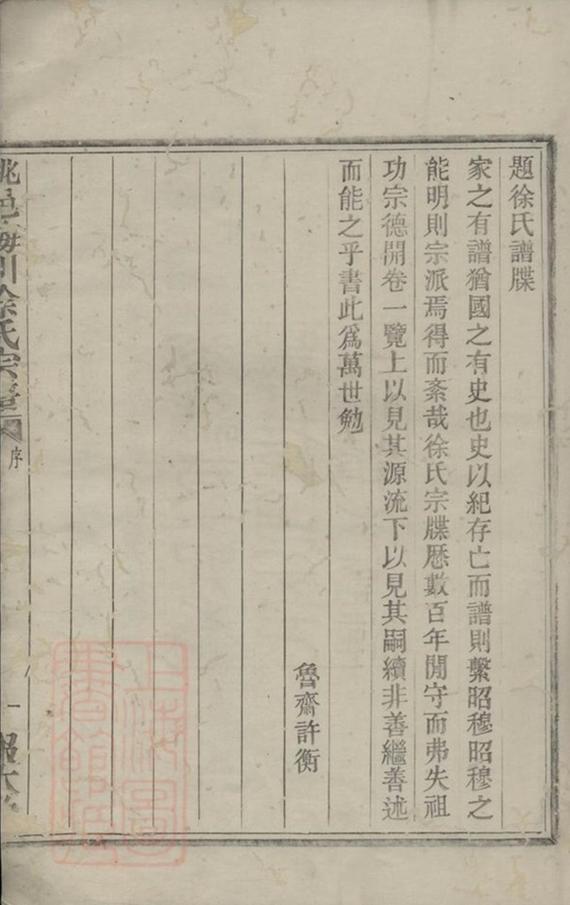 題徐氏譜牒
家之有譜猶國之有史也史以紀存亡而譜則繫昭穆昭穆之
能明則宗派焉得而紊哉徐氏宗牒歷數百年閒守而弗失祖
功宗德開卷一覽上以見其源流下以見其嗣續非善繼善述
而能之乎書此爲萬世勉
魯齋許衡
姚邑梅川徐氏宗譜
序
一
上海圖書館藏